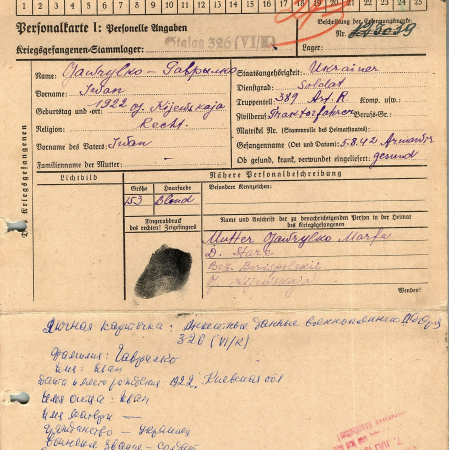 1 2 3 4 5 6 7 8 9 10 11 12 13 14 15 16 17 18 19 20 21 22 23 24 25
Personalkarte I: Personelle Angaben
Beschriftung der Erkennungsmarke
Kriegsgefangenen-Stammlager: Stalag 326 (VI/K)
Nr.
Lager:
Des Kriegsgefangenen
Name: Gawrylko - Гаврылко
Vorname: Iwan
Geburtstag und -ort: 1922 Kijewskaja
Religion: Recht.
Vorname des Vaters: Iwan
Familienname der Mutter:
Staatsangehörigkeit: Ukrainer
Dienstgrad: Soldat
Truppenteil: 389 Art. R Komp. usw.:
Zivilberuf: Traktorfahrer Berufs-Gr.:
Matrikel Nr. (Stammrolle des Heimatstaates):
Gefangennahme (Ort und Datum): 5.8.42
Ob gesund, krank, verwundet eingeliefert: gesund
Lichtbild
Nähere Personalbeschreibung
Größe
Haarfarbe
Besondere Kennzeichen:
153
Blond
Fingerabdruck
des rechten! Zeigefingers
Name und Anschrift der zu benachrichtigenden Person in der Heimat
des Kriegsgefangenen
Mutter Gawrylko Marfa
D. Stare
Bez. Borispolskii
Wenden!
Личная карточка: данные
326 (VI/K)
Фамилия: Гаврылко
Имя: Иван
Дата и место рождения: 1922, Киевская обл
Имя отца: Иван
Имя матери —
Гражданство — Украина
Воинское звание — солдат